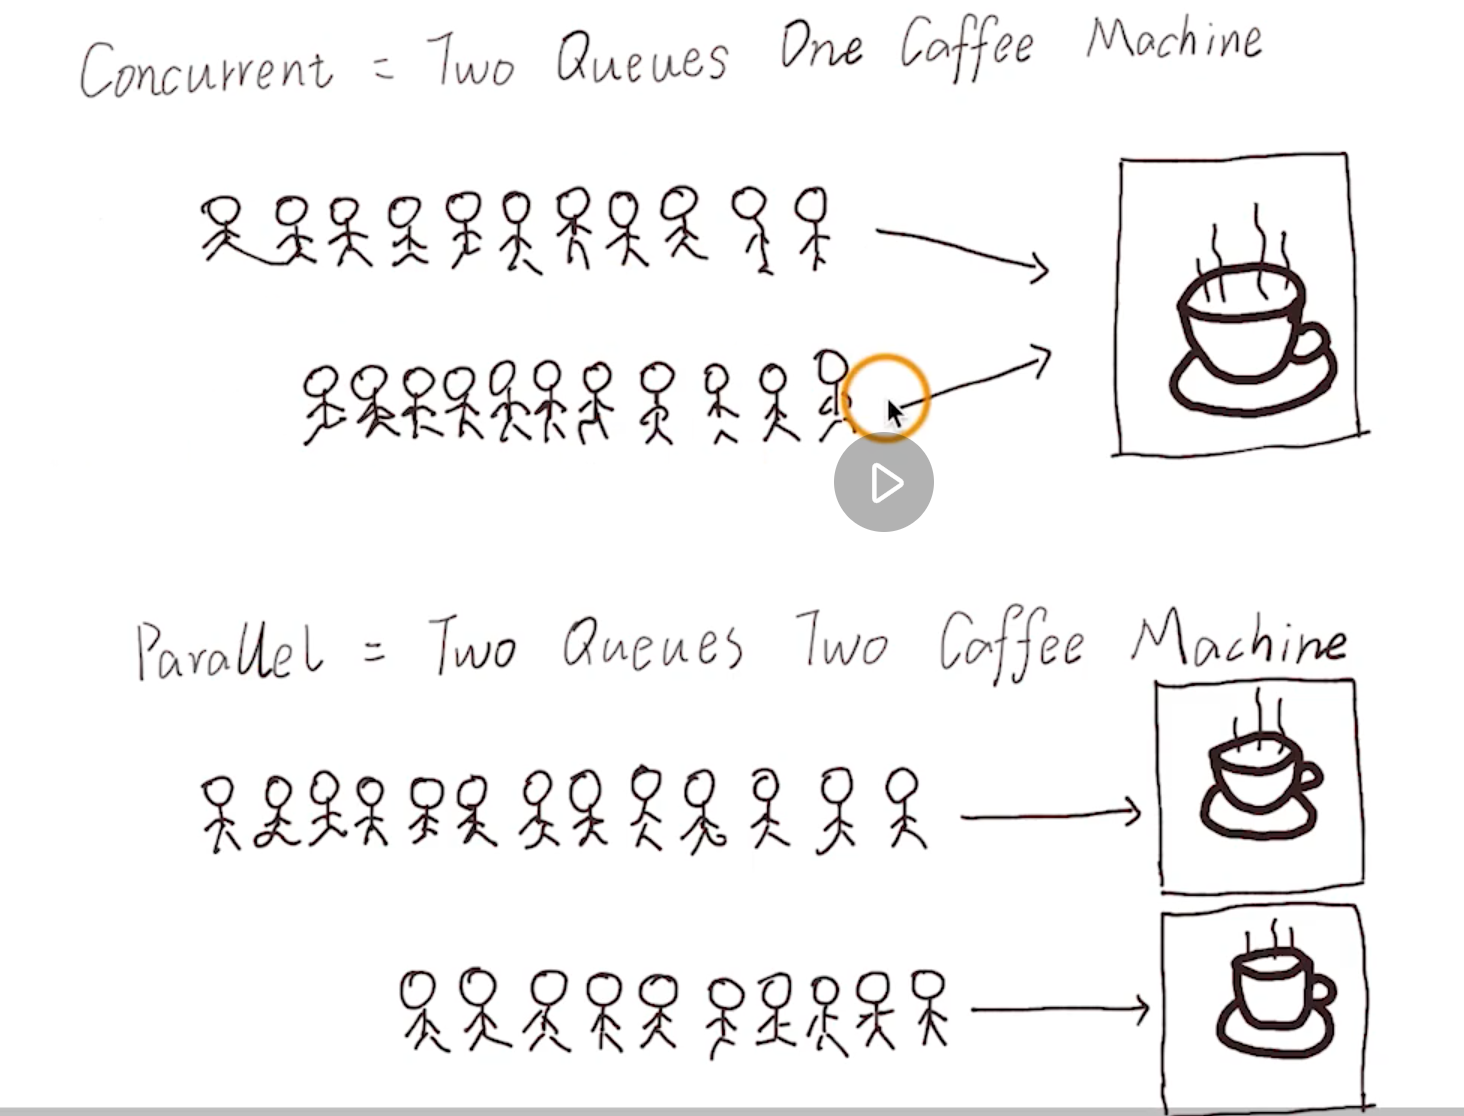 Concurrent = Two Queues One Caffee Machine
Parallel = Two Queues Two Caffee Machine